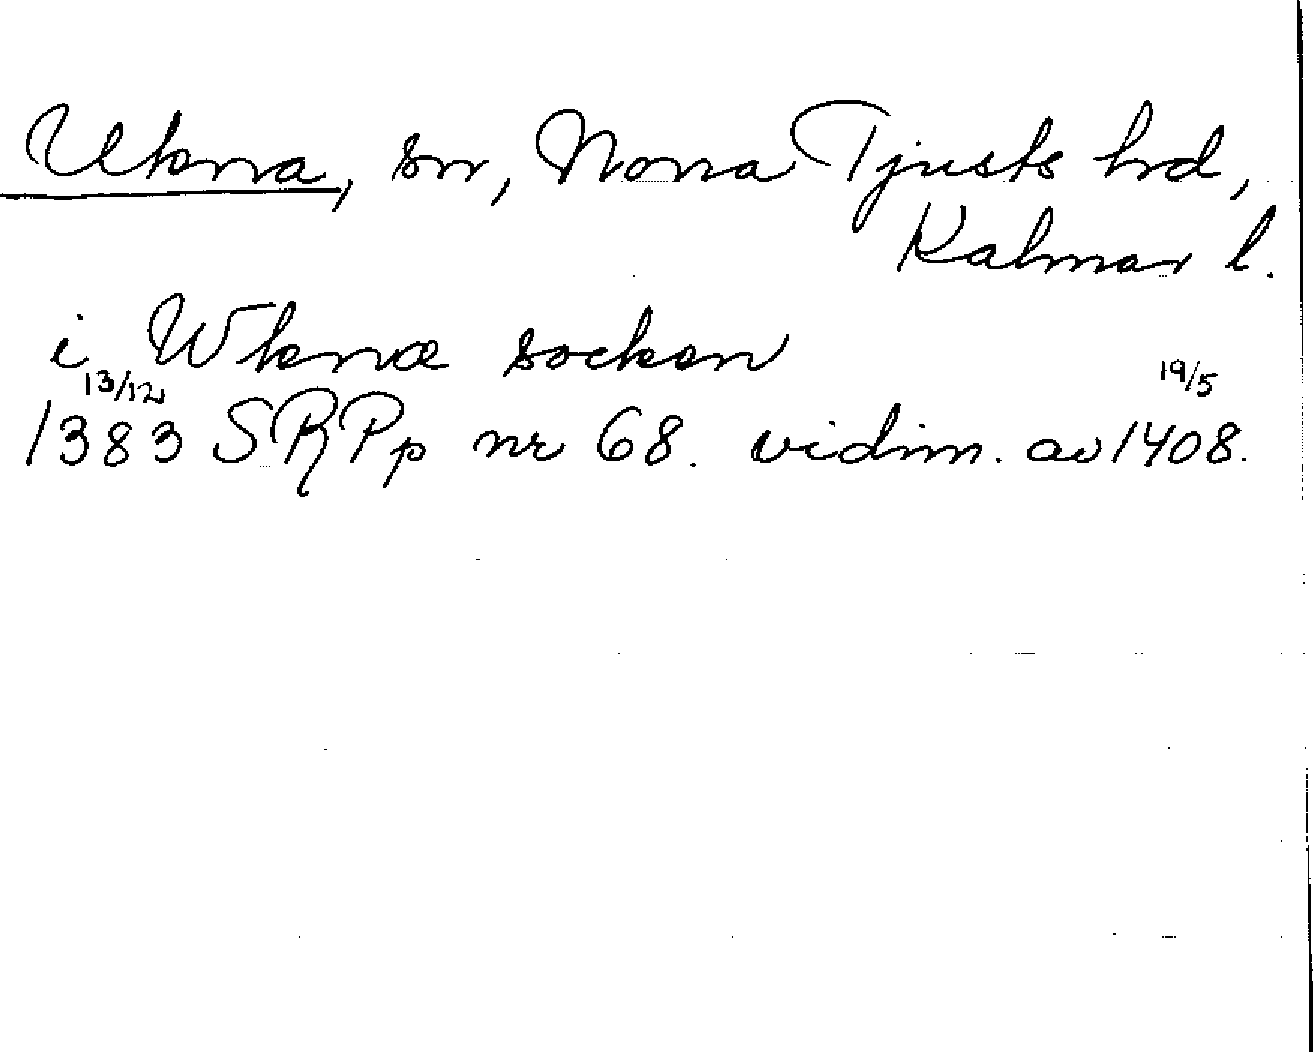 Ukna, sn, Norra Tjusts hrd,
Kalmar l.
i Wknæ socken
13/12 19/5
1383 SRPp nr 68. vidim. av 1408.